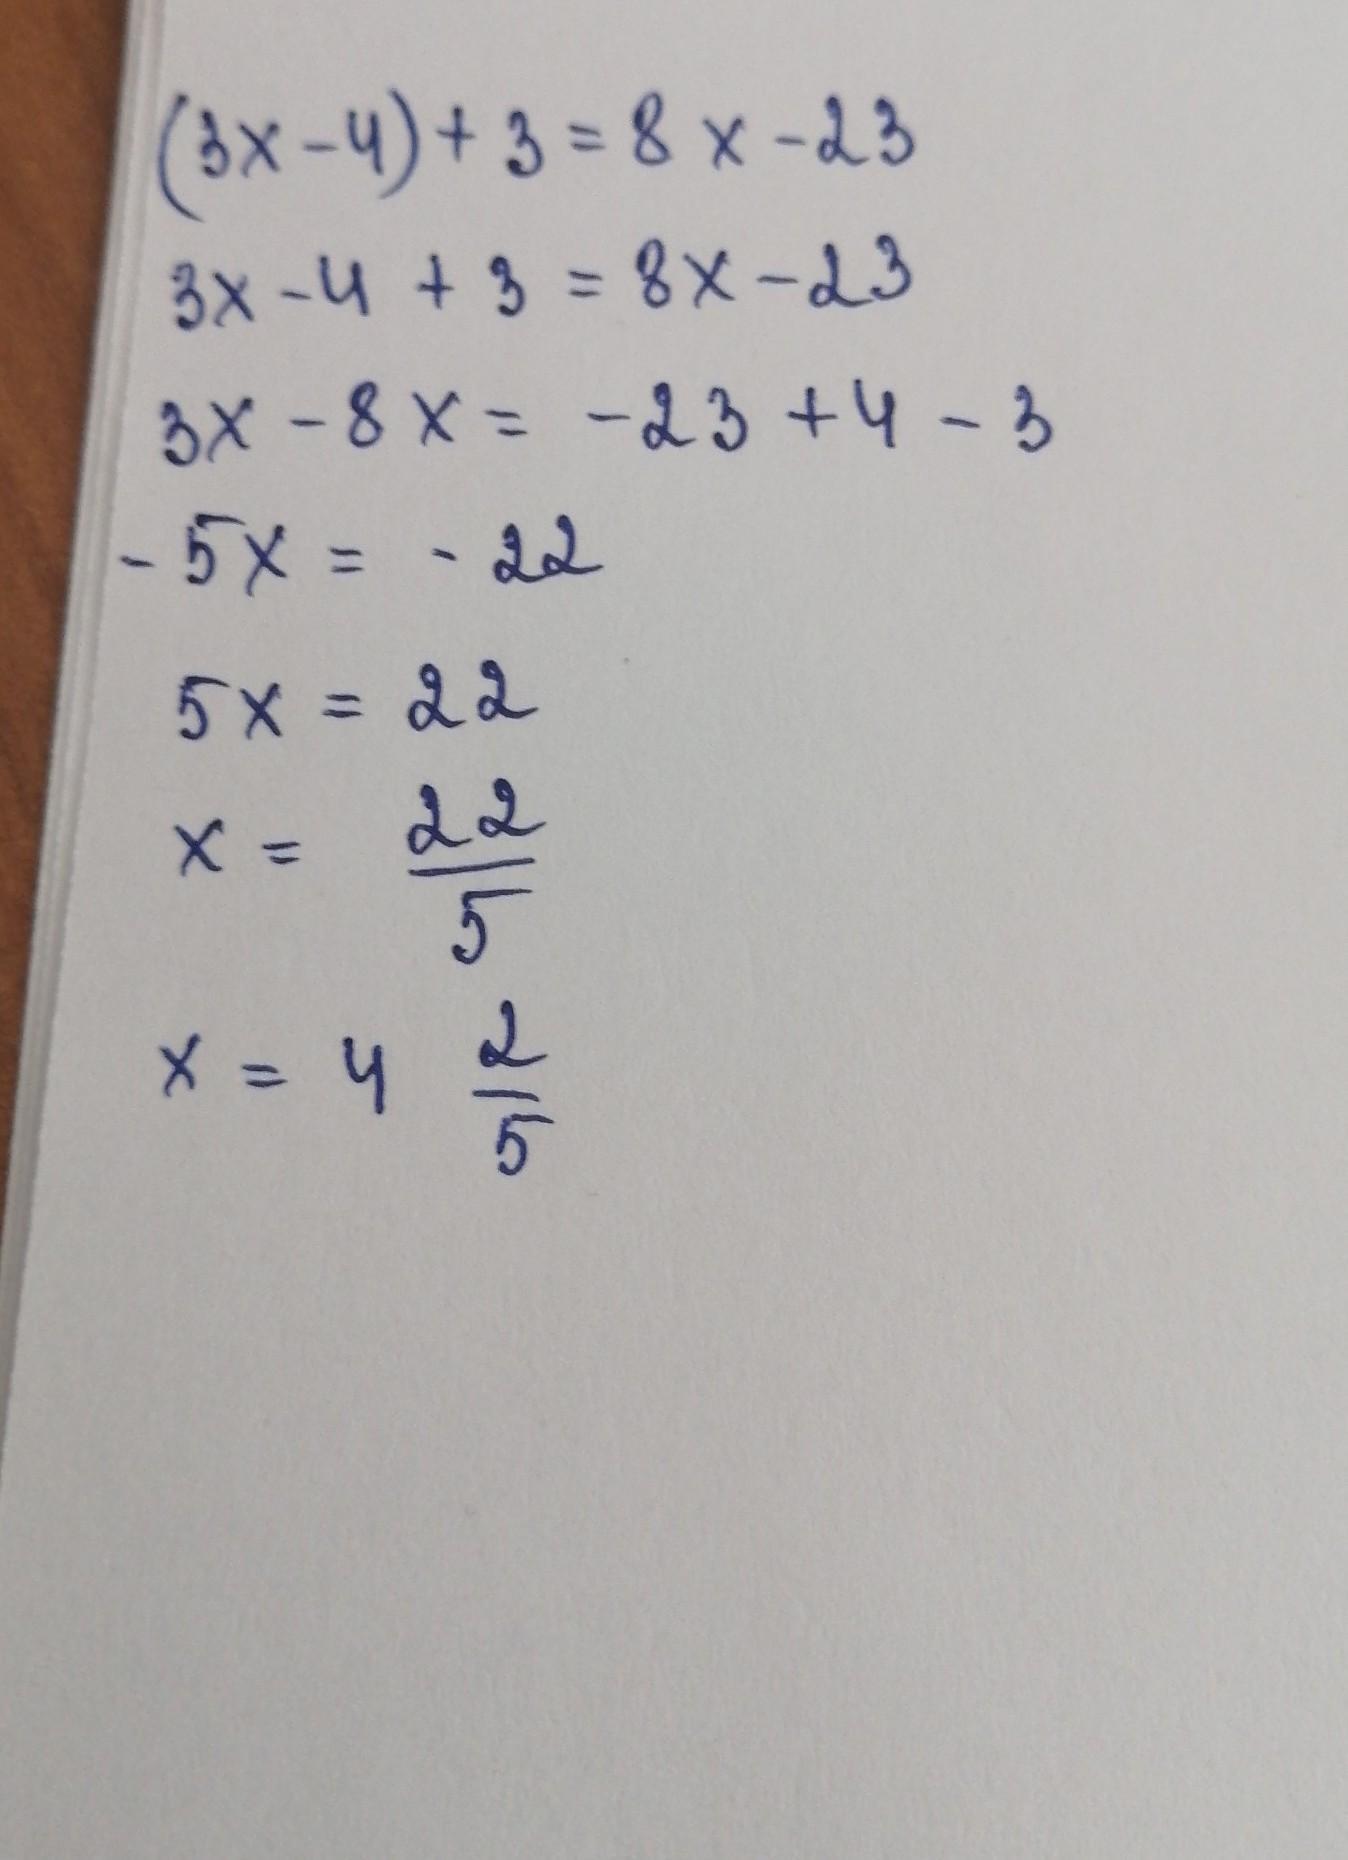 (3x-4)+3=8x-23
3x-4+3=8x-23
3x-8x=-23+4-3
-5x=-22
5x=22
x=22/5
x=4 2/5